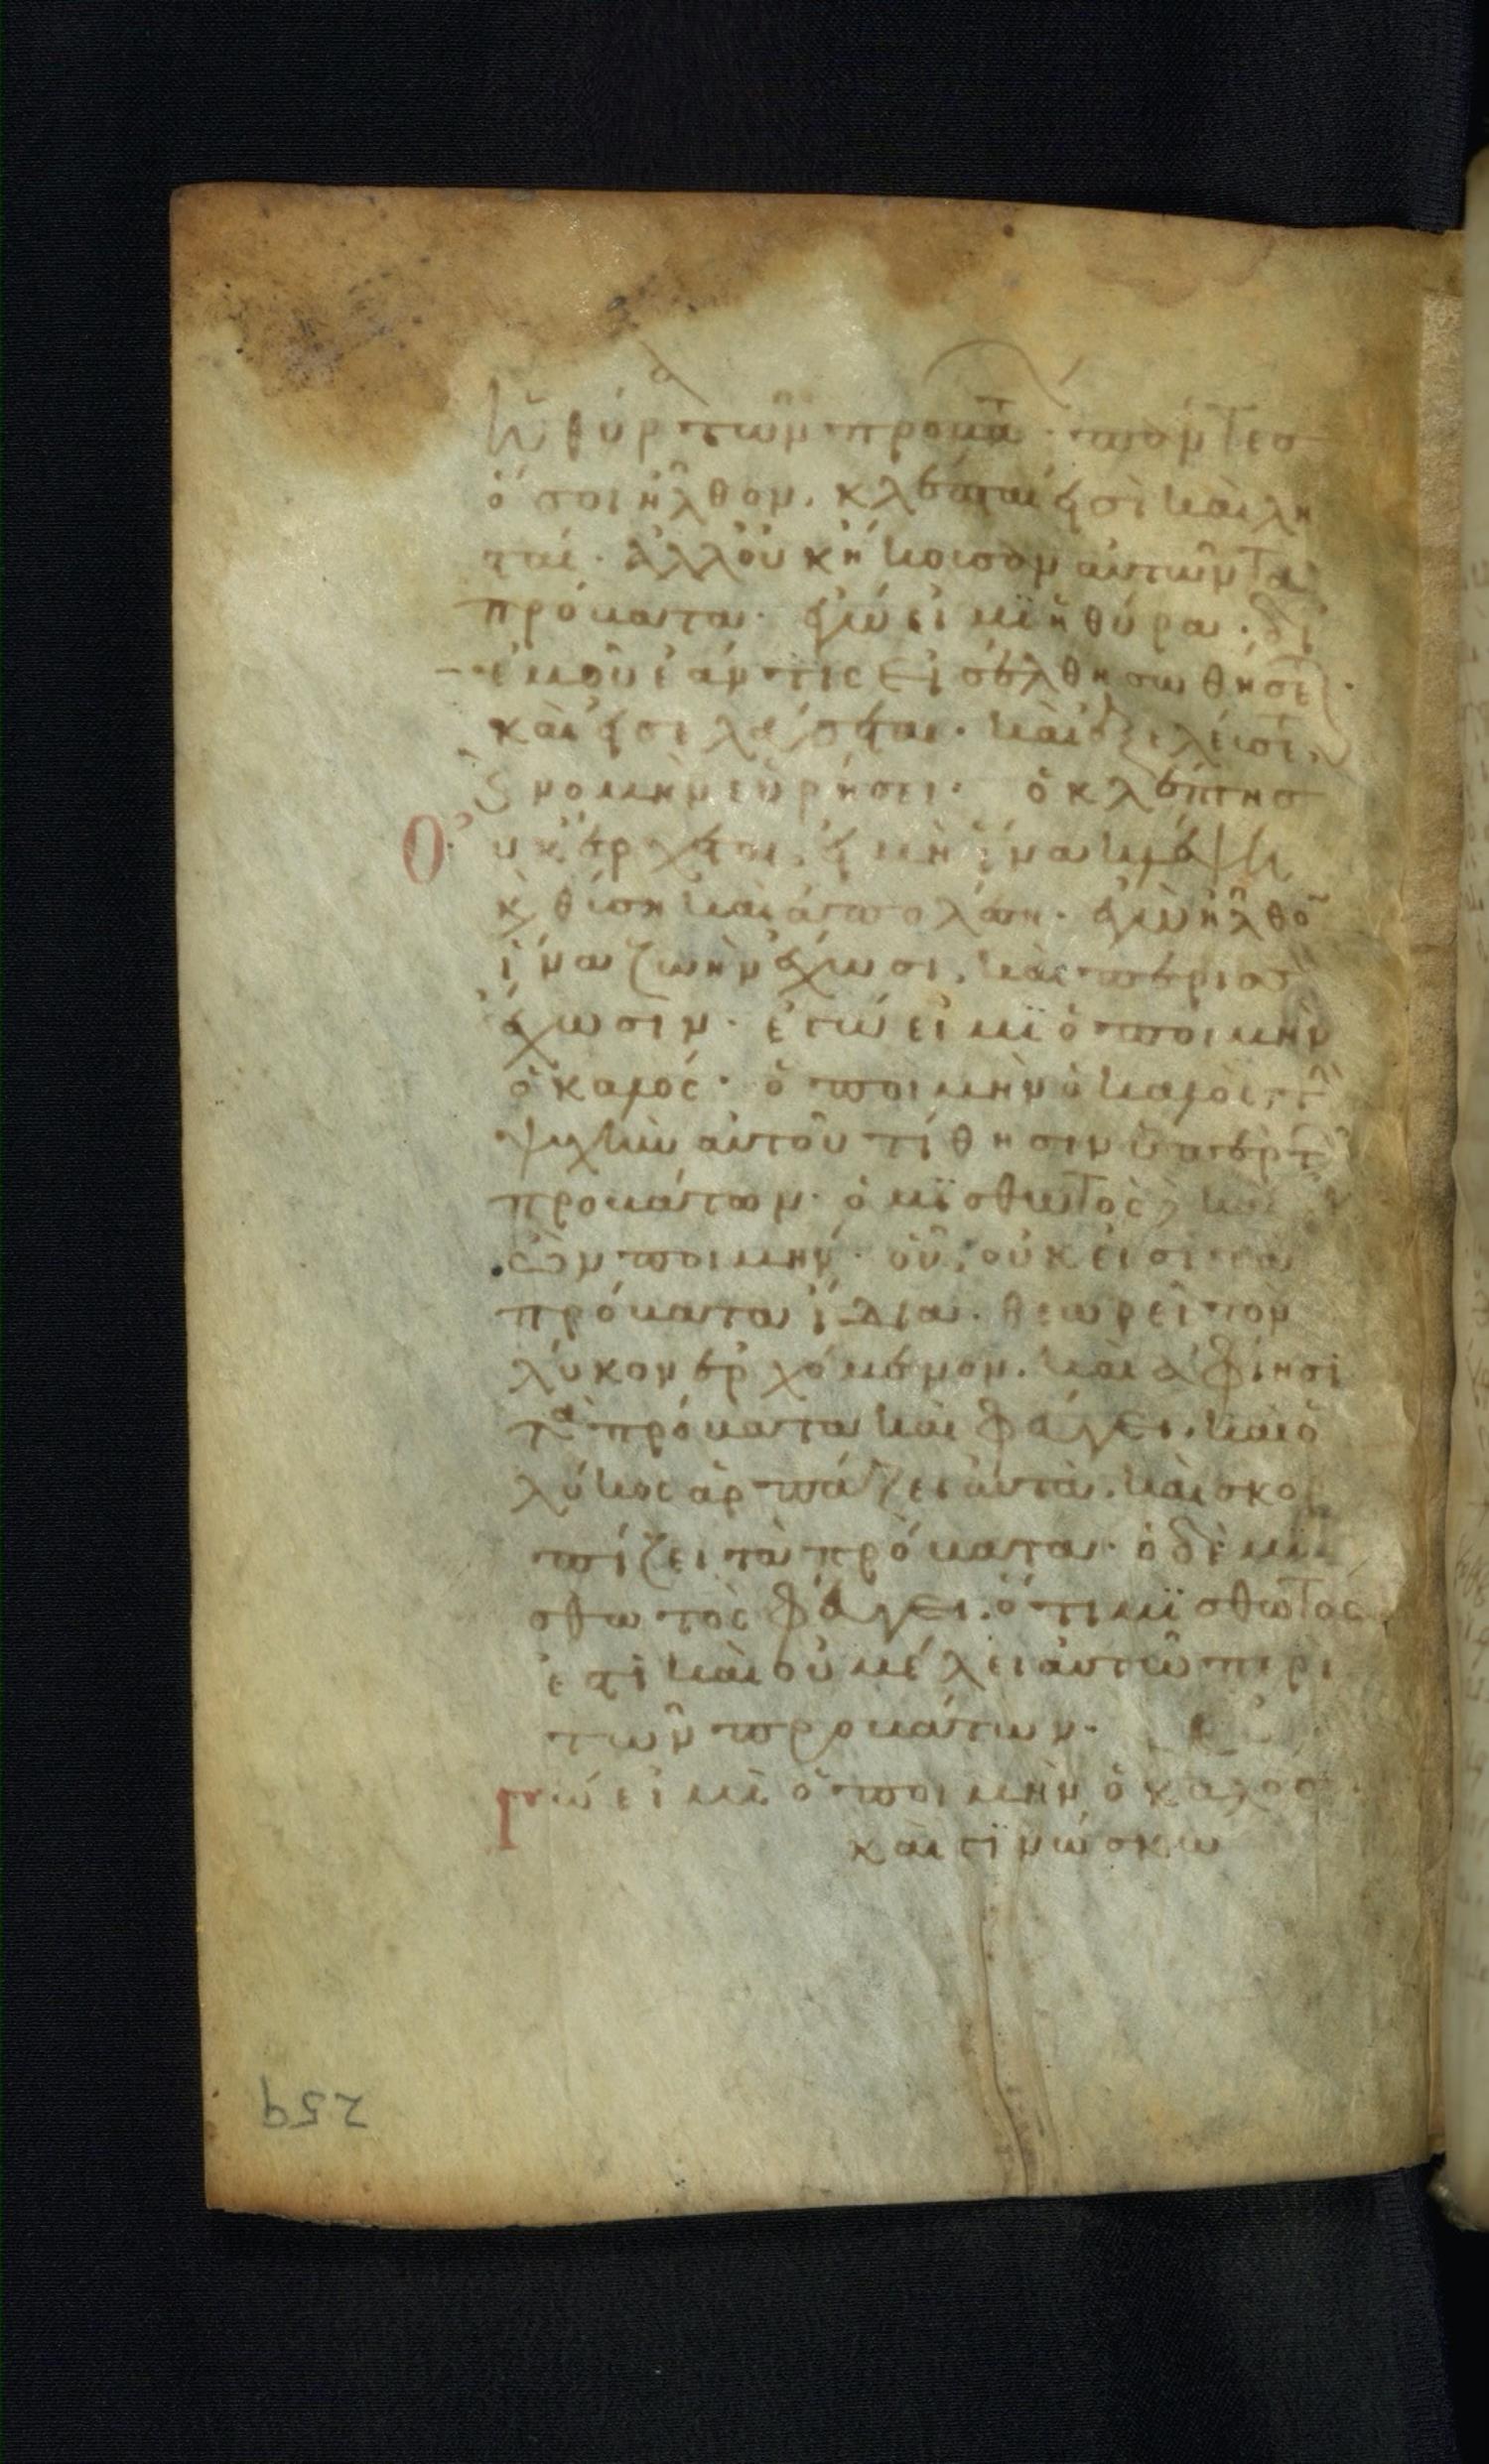 ἡ θύρα τῶν προβά πάντες
ὅσοι ἦλθον, κλέπται εἰσὶ καὶ λη
ταί· ἀλλ' οὐκ ἤκουσαν αὐτῶν τὰ
πρόβατα· ἐγώ εἰμϊ ἡ θύρα· δι
ἐμοῦ ἐάν τις εἰσέλθη σωθήσετ
καὶ εἰσελεύσεται· καὶ ἐξελεύσετ,
ς νομὴν εὑρήσει· ὁ κλέπτησ
Οὐκ ἔρχεται, εἰ μὴ ἵνα κλέψη
κ θύση καὶ ἀπολέση· ἐγὼ ἦλθο
ἵνα ζωὴν ἔχωσι, καὶ περισσὸ
ἔχωσιν· ἐγώ εἰμϊ ὁ ποιμὴν
ὁ καλός· ὁ ποιμὴν ὁ καλὸς, τὴ
ψυχὴν αὐτοῦ τίθησιν ὑπὲρ τ
προβάτων· ὁ μϊσθωτὸς, καὶ
ὢν ποιμήν· οὗ, οὐκ εἰσὶ τὰ
πρόβατα ἴδια· θεωρεῖ τὸν
λύκον ἐρχόμενον. καὶ ἀφίησι
τὰ πρόβατα καὶ φεύγει. καὶ ὁ
λύκος ἁρπάζει αὐτὰ. καὶ σκορ
πίζει τὰ πρόβατα· ὁ δὲ μϊ
σθωτὸς φεύγει. ὅτι μϊσθωτὸς
ἐστὶ καὶ οὐ μέλει αὐτῶ περὶ
τῶν προβάτων·
Γώ εἰμϊ ὁ ποιμὴν ὁ καλὸσ·
καὶ γϊνώσκω
259